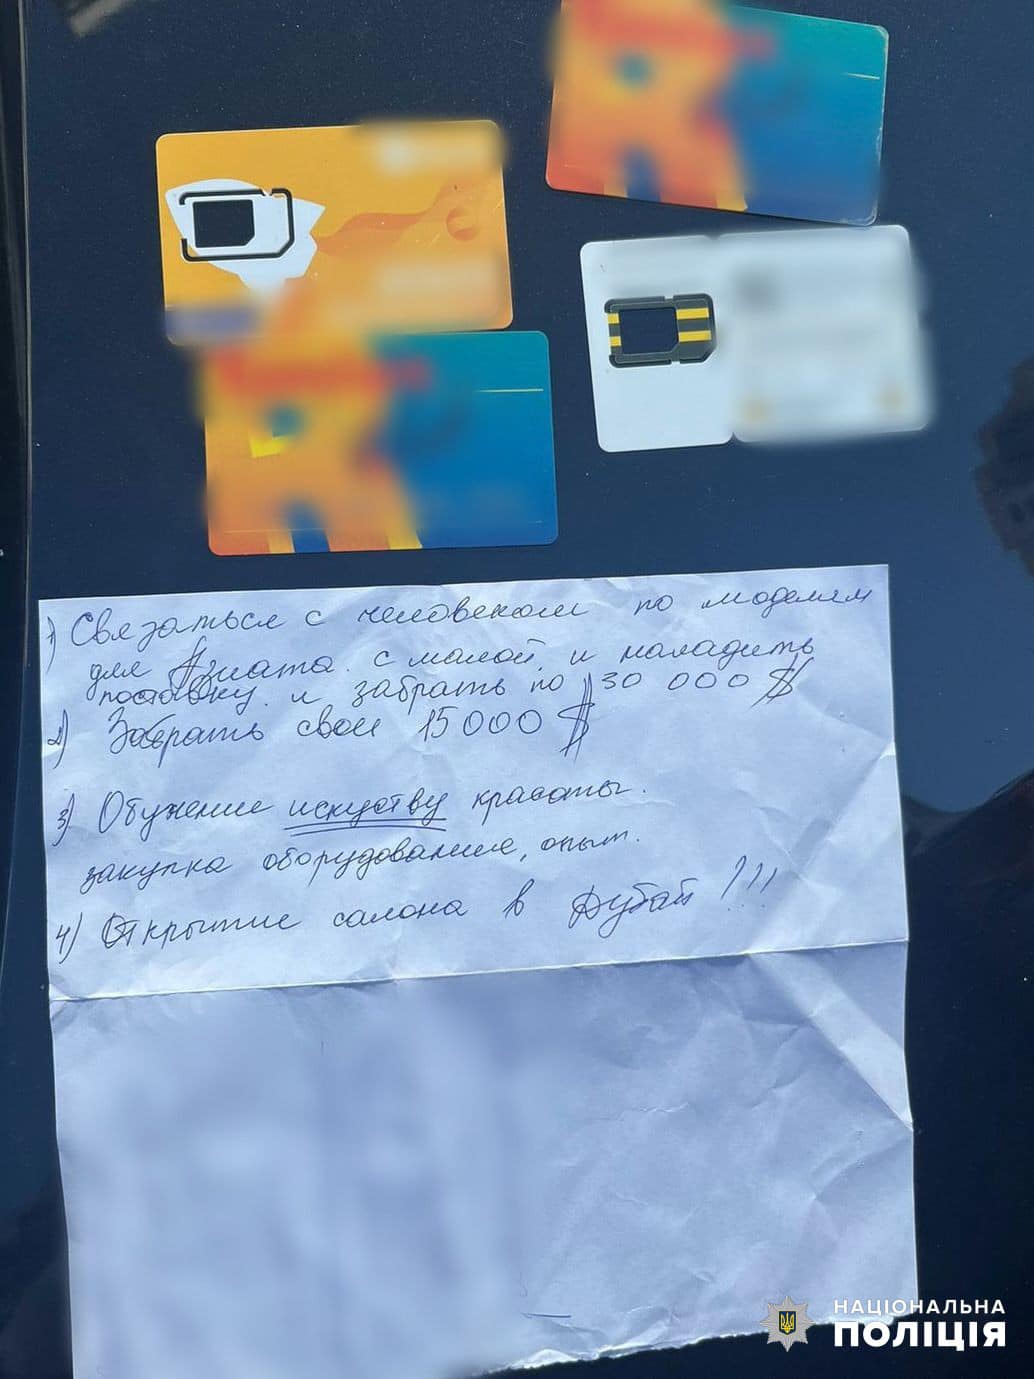 1) Связаться с человеком по моделям
для Азиата с малой, и наладить
поставку и забрать по 30 000 $
2) Забрать свои 15000 $
3) Обучение искуству красоты.
закупка оборудование, опыт.
4) Открытие салона в Дубай !!!
НАЦІОНАЛЬНА
ПОЛІЦІЯ